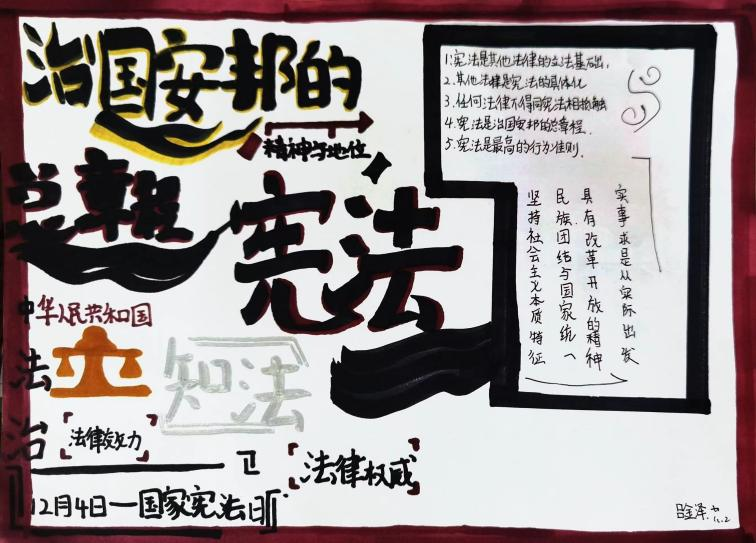 治国安邦的
精神与地位
总章程
宪法
中华人民共和国
法治
知法
法律效力
卫
法律权威
12月4日—国家宪法日
1.宪法是其他法律的立法基础,
2.其他法律是宪法的具体化
3.任何法律不得同宪法相抵触
4.宪法是治国安邦的总章程.
5.宪法是最高的行为准则.
实事求是从实际出发
具有改革开放的精神
民族.团结与国家统一
坚持社会主义本质特征